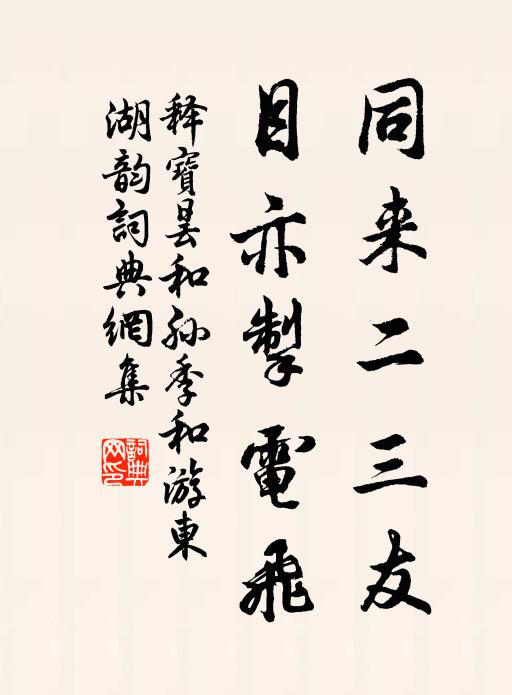 同来二三友
目亦掣電飛
释寶曇和孙季和游東
湖韵詞典網集
詞典網印